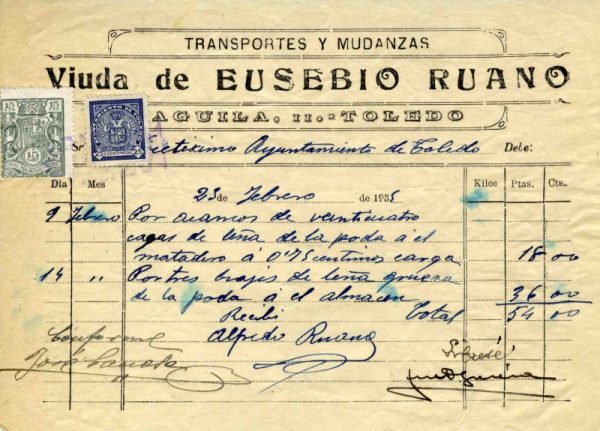 TRANSPORTES Y MUDANZAS
Viuda de EUSEBIO RUANO
AGUILA, 11.-TOLEDO
15
15
15
25
25
Sr. Ayuntamiento de Toledo Debe:
Día Mes 23 de Febrero de 1935 Kilos Ptas. Cts.
9 Febrero Por acarreos de veinticuatro
cagas de leña de la poda á el
matadero á 0'75 centimos carga 18 00
14 " Por tres biajes de leña gruesa
de la poda a el almacen 36 00
Recibi Total 54 00
Conforme Alfredo Ruano